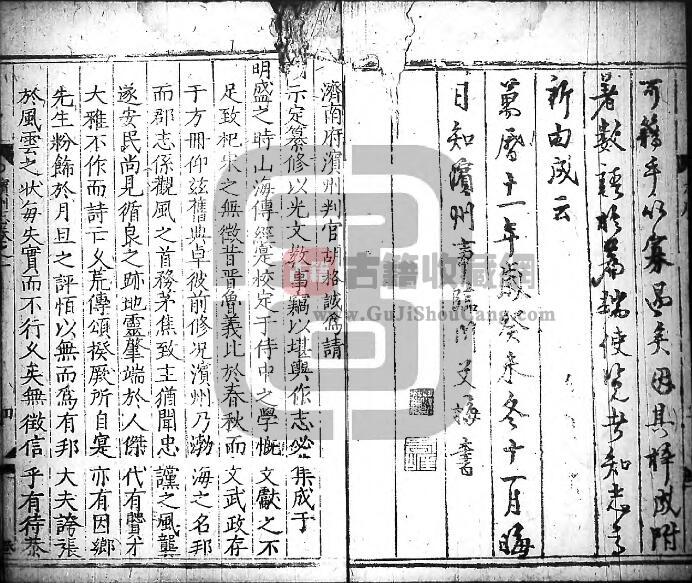 可籍手以寡過矣因具梓成附
著數語於篇端使覽者知志之
所由成云
萬曆十一年歲癸未冬十一月晦
日知濱州事臨川
書
濟南府濱州判官胡格誠為請
示定纂修以光文教事竊以堪輿作志必集成于
明盛之時山海傳經寔校定于侍中之學慨文獻之不
足致杞宋之無徵昔晉魯義比於春秋而文武政存
于方冊仰茲舊典卓彼前修况濱州乃渤海之名邦
而郡志係觀風之首務茅焦致主猶聞忠讜之風龔
遂安民尚見循良之跡地靈肇端於人傑代有豐才
大雅不作而詩亡久荒傳頌揆厥所自寔亦有因鄉
先生粉飾於月旦之評怕以無而為有邦大夫誇張
於風雲之狀每失實而不行久矣無徵信乎有待恭
古籍
古籍收藏网
www.GuJiShouCang.com